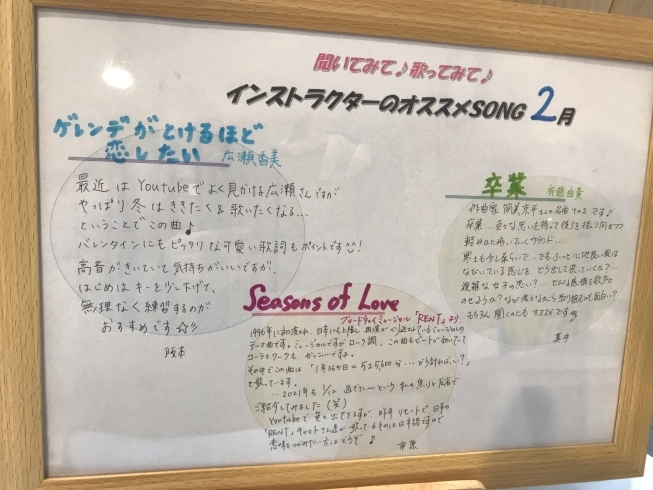 聞いてみて♪歌ってみて♪
インストラクターのオススメSONG 2月
ゲレンデがとけるほど
恋したい 広瀬香美
最近は Youtubeでよく見かける広瀬さんですが
やっぱり冬はききたく&歌いたくなる…
ということでこの曲♪
バレンタインにもピッタリな可愛い歌詞もポイントです!
高音がきいていて気持ちがいいですが、
はじめはキーを少し下げて、
無理なく練習するのが
おすすめです☆彡
阪本
卒業 斉藤由貴
作曲家 筒美京平さんの名曲
卒業…色々な思いを持って後ろを振り向きつつ
軽やかに歩いていくサウンド…
複雑な女子の思い?…
もちろん聞くのもオススメです
Seasons of Love
ブロードウェイミュージカル「RENT」より
1996年に初演され、日本にも上陸し 再演がくり返されているミュージカルの
テーマ曲です。ミュージカルですがロック調、この曲もビートがきいてて
コーラスワークもかっこいいですよ。
その中でこの曲は「1年365日=525,600分…どう計ればいい?」
と歌っています。
…2021年も 1/12 過ぎた〜という私の焦りと反省で
ご紹介してみました(笑)
YouTubeで色々出てきますが、昨年リモートで日本の
「RENT」キャストさん達が歌っているものは日本語ですので
意味をつかみたい方はどうぞ♪
市原